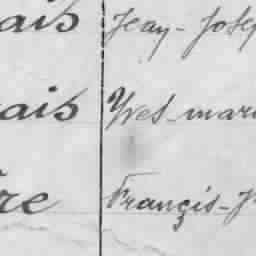 ais Jean-Josep
ais Yves-mari
re François-J